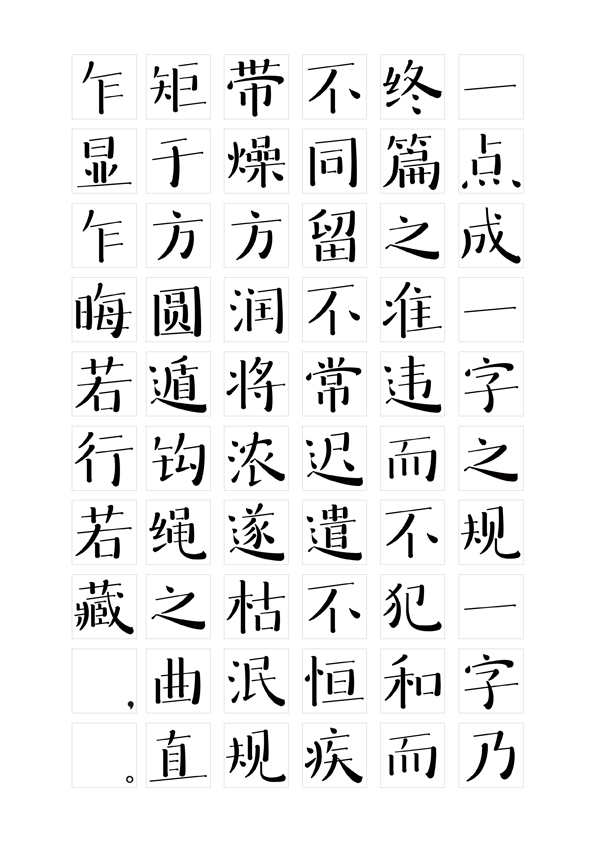 一点成一字之规一字乃
终篇之准违而不犯和而
不同留不常迟遣不恒疾
带燥方润将浓遂枯泯规
矩于方圆遁钩绳之曲直
乍显乍晦若行若藏，。